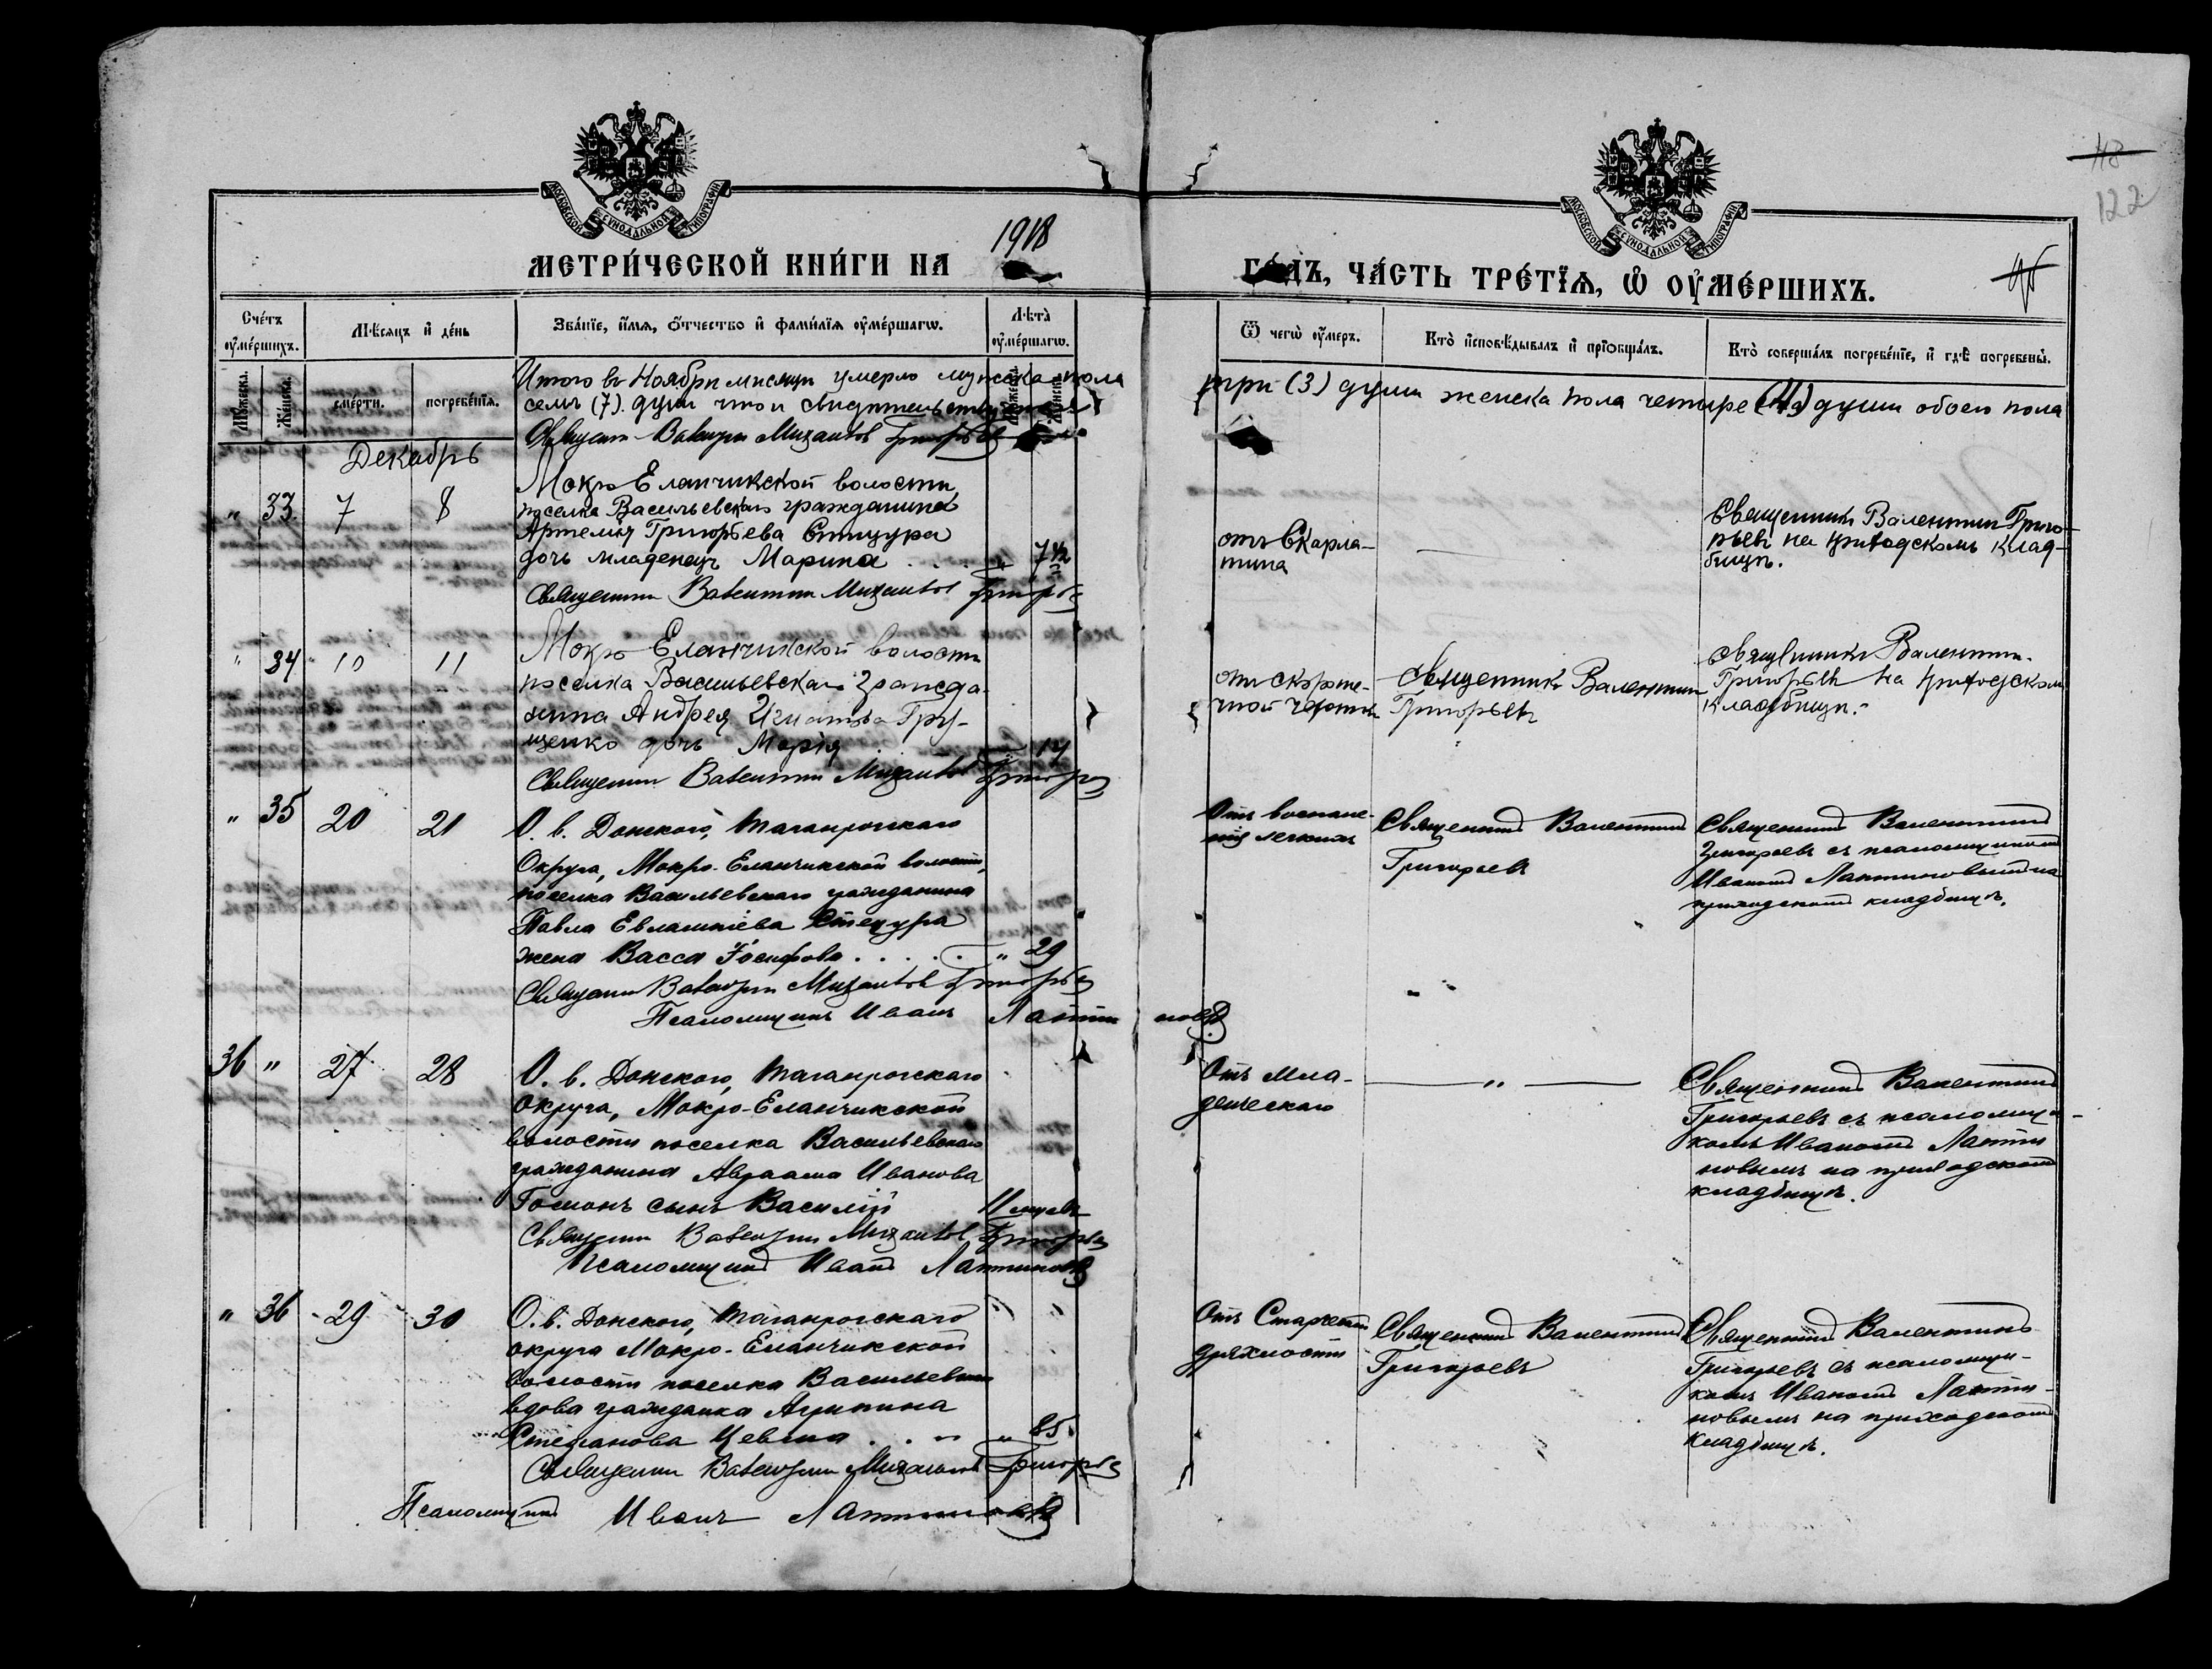 МОСКОВСКОЙ СѴНОДАЛЬНОЙ ТИПОГРАФІИ
МОСКОВСКОЙ СѴНОДАЛЬНОЙ ТИПОГРАФІИ
48
122
1918
МЕТРИ́ЧЕСКОЙ КНИ́ГИ НА
ГО́ДЪ, ЧА́СТЬ ТРЕ́ТЇѦ, Ѡ҆ ОУ҆МЕ́РШИХЪ.
Сче́тъ оу҆ме́ршихъ.
Мѣ́сяцъ и҆ де́нь
Зва́нїе, и҆́мѧ, ѻ҆́тчество и҆ фами́лїѧ оу҆ме́ршагѡ.
Лѣ̑та̀ оу҆ме́ршагѡ.
Ѿ чегѡ̀ оу҆́меръ.
Кто̀ и҆сповѣ́дывалъ и҆ прїѡбща́лъ.
Кто̀ соверша́лъ погребе́нїе, и҆ гдѣ̀ погребены̀.
Му́жеска.
Же́нска.
сме́рти.
погребе́нїѧ.
Му́жеска.
Же́нска.
Итого въ Ноябрѣ мѣсяцѣ умерло мужска пола три (3) души женска пола четыре (4) души обоего пола
семь (7). душъ что и свидѣтельствую
Священникъ Валентинъ Михаиловъ Григорьевъ
Декабрь
" 33 7 8
Мокро Еланчикской волости
поселка Васильевскаго гражданина
Артемія Григорьева Стицура
дочь младенецъ Марина . . . " 7½
Священникъ Валентинъ Михаиловъ Григорьевъ
отъ Скарла-
тина
Священникъ Валентинъ Григо-
рьевъ на приходскомъ клад-
бищѣ.
" 34 10 11
Мокро Еланчикской волости
поселка Васильевскаго гражда-
нина Андрея Игнатова Гру-
щенко дочь Марія 14
Священникъ Валентинъ Михаиловъ Григорьевъ
отъ скороте-
чной чахотки
Священникъ Валентинъ
Григорьевъ
Священникъ Валентинъ
Григорьевъ на приходскомъ
кладбищѣ.
" 35 20 21
О. в. Донского, Таганрогскаго
Округа, Мокро-Еланчикской волости,
поселка Васильевскаго гражданина
Павла Евлампіева Стецура
жена Васса Іосифова . . . . . " 29
Священникъ Валентинъ Михаиловъ Григорьевъ
Псаломщикъ Иванъ Лаптиновъ
Отъ воспале-
нія легкихъ
Священникъ Валентинъ
Григорьевъ
Священникъ Валентинъ
Григорьевъ съ псаломщикомъ
Иваномъ Лаптиновымъ на
приходскомъ кладбищѣ.
36 " 27 28
О. в. Донского, Таганрогскаго
округа, Мокро-Еланчикской
волости поселка Васильевскаго
гражданина Авраама Иванова
Гомонъ сынъ Василій 11 мѣсяц.
Священникъ Валентинъ Михаиловъ Григорьевъ
Псаломщикъ Иванъ Лаптиновъ
Отъ Мла-
денческаго
"
Священникъ Валентинъ
Григорьевъ съ псаломщи-
комъ Иваномъ Лапти
новымъ на приходскомъ
кладбищѣ.
" 36 29 30
О. в. Донского, Таганрогскаго
округа Мокро-Еланчикской
волости поселка Васильевскаго
вдова гражданка Агрипина
Стефанова . . " " 85.
Священникъ Валентинъ Михаиловъ Григорьевъ
Псаломщикъ Иванъ Лаптиновъ
Отъ Старческой
дряхлости
Священникъ Валентинъ
Григорьевъ
Священникъ Валентинъ
Григорьевъ съ псаломщи-
комъ Иваномъ Лапти-
новымъ на приходскомъ
кладбищѣ.